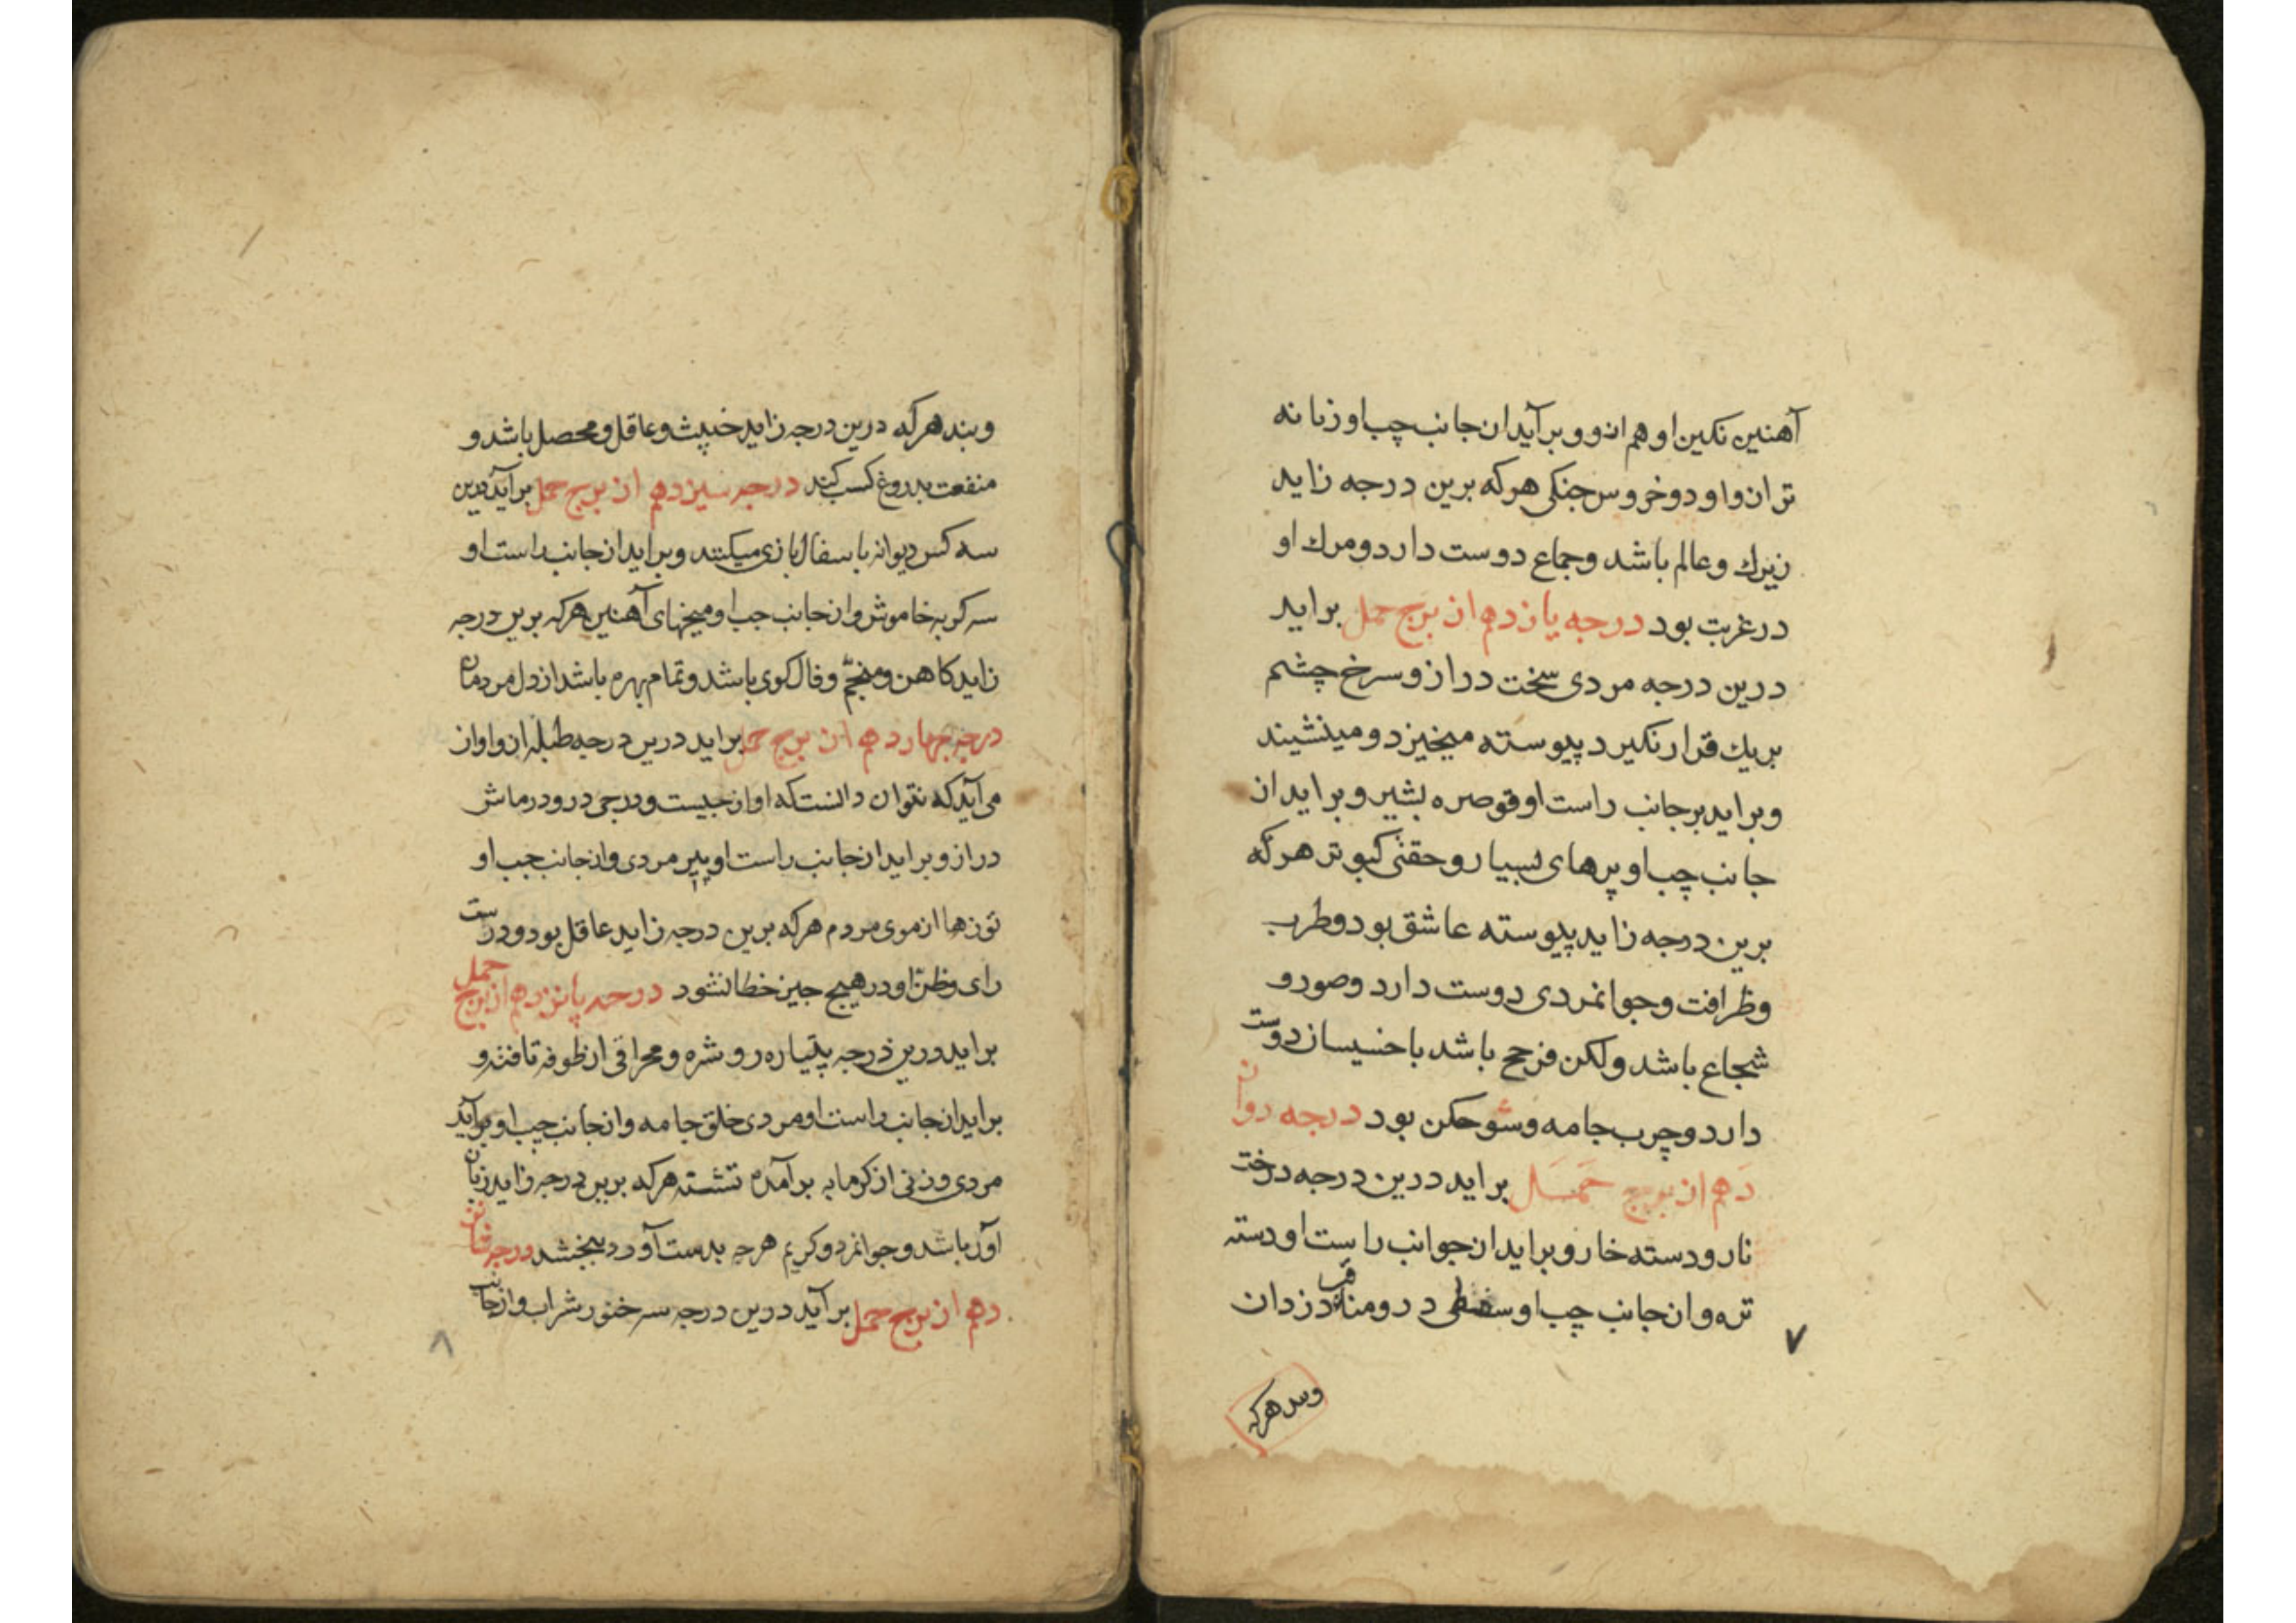 آهنین نکین او هم ازو و برآید از جانب چپ او زبانه
ترازو او دو خروس جنکی هرکه برین درجه زاید
زیرك و عالم باشد و جماع دوست دارد و مرك او
در غربت بود درجه یازدهم از برج حمل براید
درین درجه مردی سخت دراز و سرخ چشم
بریك قرار نکیرد پیوسته میخیزد و مینشیند
و براید برجانب راست او قوصره بشیر و براید از
جانب چپ او پرهای بسیار و حقنی کبوتر هرکه
برین درجه زاید پیوسته عاشق بود و طرب
و ظرافت و جوانمردی دوست دارد و صور و
شجاع باشد ولکن باشد با خسیسان دوست
دارد و چرب جامه و شوخکن بود درجه دوازدهم
از برج حمل براید درین درجه درخت
نار و دسته خار و براید از جوانب راست او دسته
تره و از جانب چپ او سفطی درو دزدان
و بند هرکه
۷
و بند هرکه درین درجه زاید خبیث و عاقل و محصل باشد و
منفعت بدروغ کسب کند درجه سیزدهم از برج حمل برآید درین
سه کس دیوانه با سفال بازی میکنند و براید از جانب راست او
سه کربه خاموش و از جانب چپ او میخهای آهنین هرکه برین درجه
زاید کاهن و منجم و فال کوی باشد و تمام بهره باشد از دل مردمان
درجه چهاردهم از برج حمل براید درین درجه طبله از و اواز
می آید که نتوان دانست که اواز چیست و درجی درو درماش
دراز و براید از جانب راست او پیر مردی و از جانب چپ او
توزها از موی مردم هرکه برین درجه زاید عاقل بود و درست
رای و ظن او در هیچ چیز خطا نشود درجه پانزدهم از برج حمل
براید درین درجه پتیاره رو شره و محراقی از ظوفه تافته و
براید از جانب راست او مردی خلق جامه و از جانب چپ او برآید
مردی و زنی از کرمابه برآمده نشسته هرکه برین درجه زاید زبان
آور باشد و جوانمرد و کریم هرچه بدست آورد ببخشد درجه شانز
دهم از برج حمل برآید درین درجه سه خنور شراب و از جانب
۸